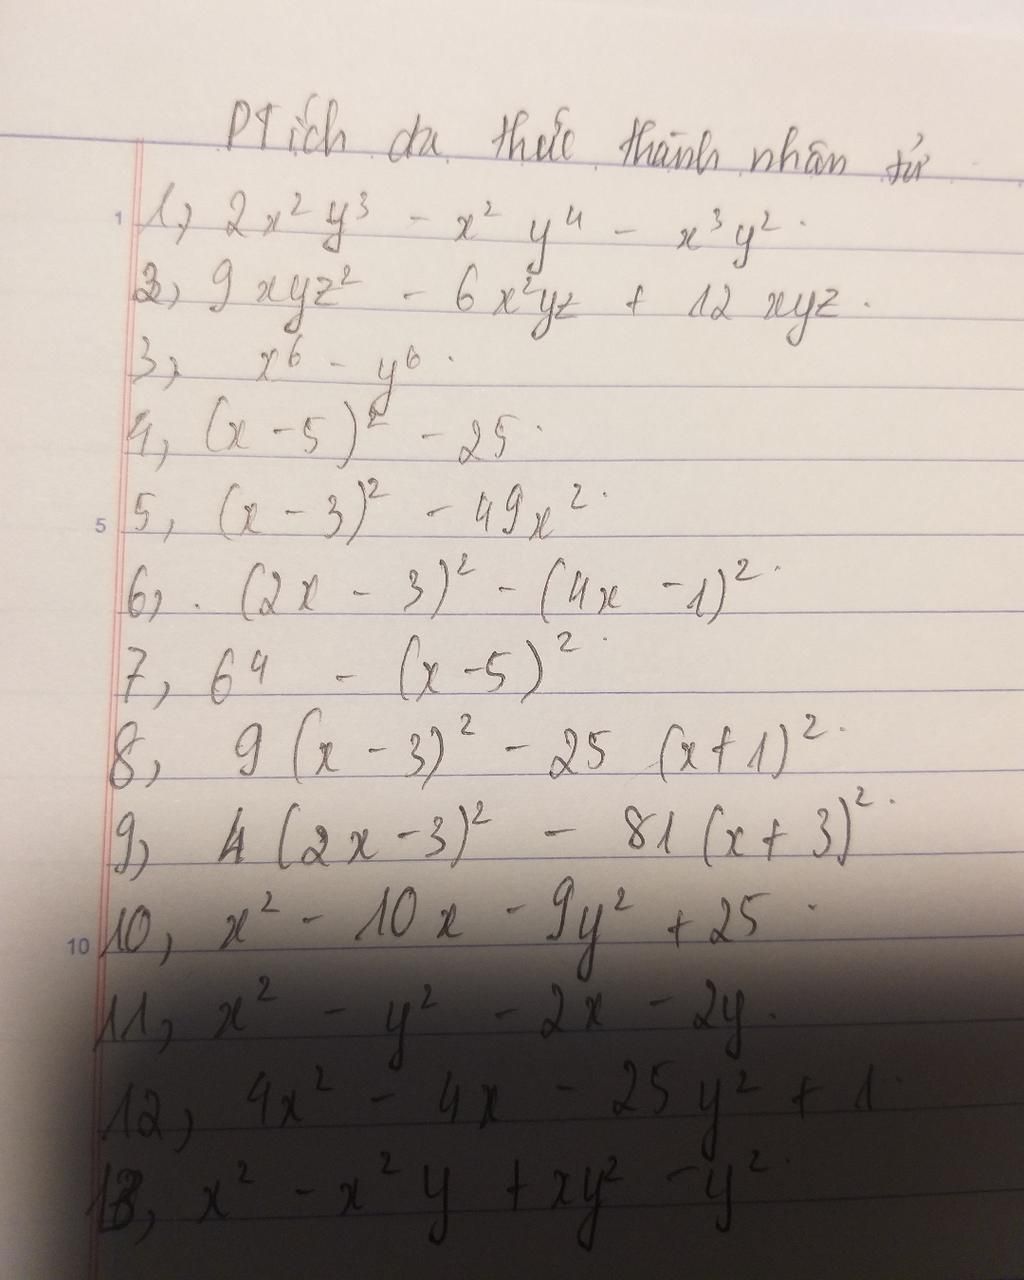 PTích đa thức thành nhân tử
1, 2x² y³ - x² y⁴ - x³y².
2, 9xyz² - 6x²yz + 12 xyz.
3, x⁶ - y⁶.
4, (x - 5)² - 25.
5, (x - 3)² - 49x².
6, (2x - 3)² - (4x - 1)².
7, 64 - (x - 5)².
8, 9 (x - 3)² - 25 (x + 1)².
9, 4 (2x - 3)² - 81 (x + 3)².
10, x² - 10x - 9y² + 25.
11, x² - y² - 2x - 2y.
12, 4x² - 4x - 25y² + 1.
13, x² - x²y + xy² - y².